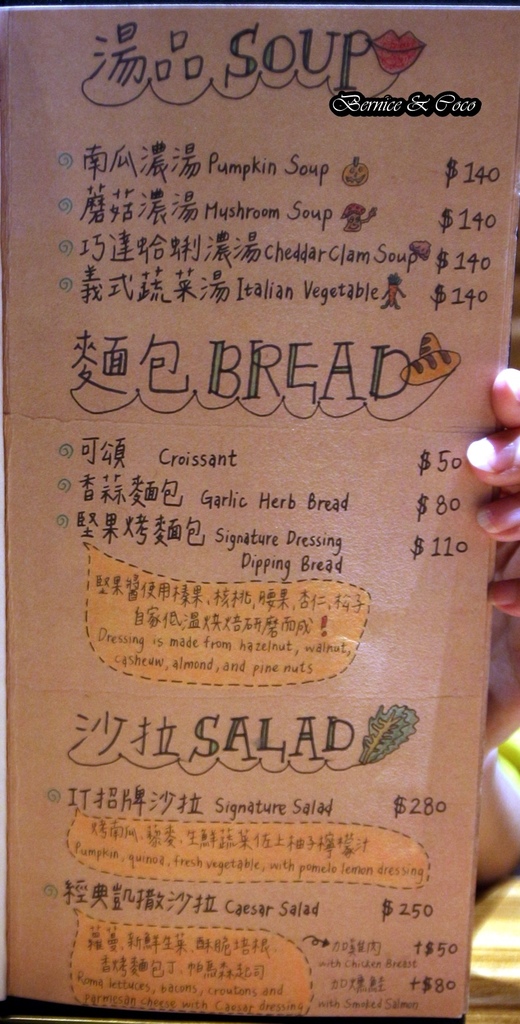 湯品 SOUP
Bernice & Coco
南瓜濃湯 Pumpkin Soup $140
蘑菇濃湯 Mushroom Soup $140
巧達蛤蜊濃湯 Cheddar Clam Soup $140
義式蔬菜湯 Italian Vegetable $140
麵包 BREAD
可頌 Croissant $50
香蒜麵包 Garlic Herb Bread $80
堅果烤麵包 Signature Dressing $110
Dipping Bread
堅果醬使用榛果、核桃、腰果、杏仁、松子
自家低溫烘焙研磨而成!
Dressing is made from hazelnut, walnut,
casheuw, almond, and pine nuts
沙拉 SALAD
IT招牌沙拉 Signature Salad $280
烤南瓜、藜麥、生鮮蔬菜佐上柚子檸檬汁
Pumpkin, quinoa, fresh vegetable, with pomelo lemon dressing
經典凱撒沙拉 Caesar Salad $250
蘿蔓、新鮮生菜、酥脆培根、
香烤麵包丁、帕馬森起司
Roma lettuces, bacons, croutons and
parmesan cheese with Caesar dressing
加雞肉 +$50
with Chicken Breast
加燻鮭 +$80
with Smoked Salmon